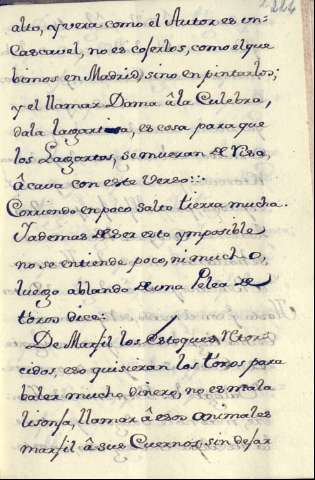 224
alto, y vera como el Autor es un
Cascavel, no es coserlos, como el que
bimos en Madrid, sino en pintarlos;
y el llamar Dama â la Culebra,
dala lagartina, es cosa para que
los Lagartos, se mueran de Risa,
âcava con este Verso:
Corriendo en poco salto tierra mucha.
Y ademas de ser esto ymposible
no se entiende poco, ni mucho,
luego ablando de una Pelea de
tóros dice:
De Marfil los Estoques Retor-
cidos, eso quisieran los tóros para
baler mucho dinero, no es mala
lisonja, llamar â esos animales
marfil â sus Cuernos, sin dejar